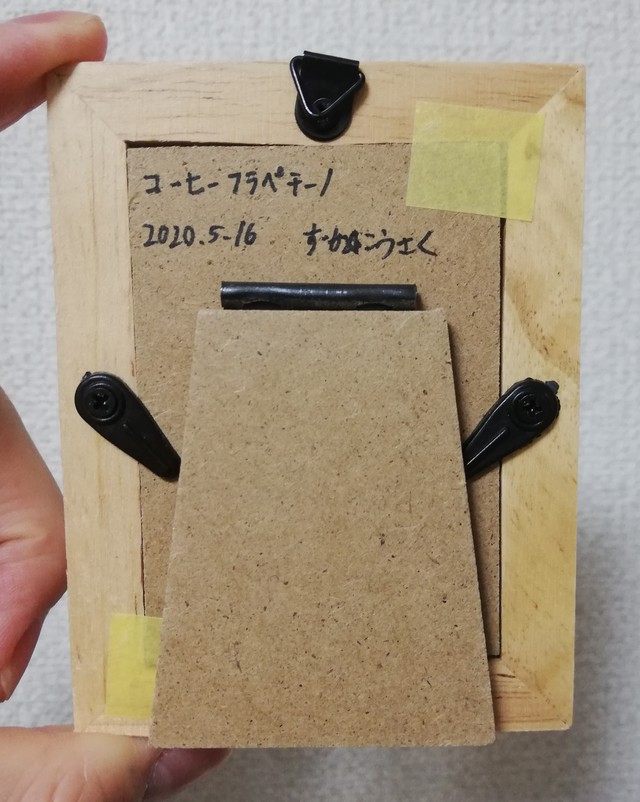 コーヒーフラペチーノ
2020.5-16 ずがこうさく